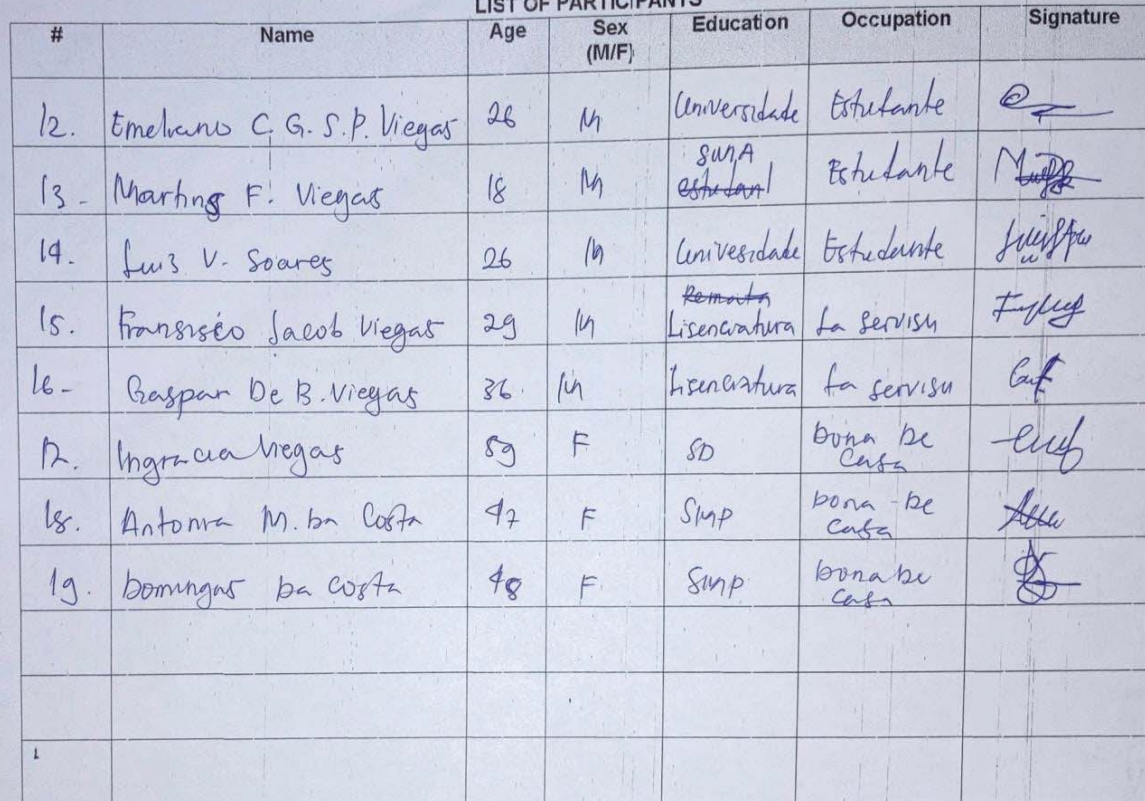 LIST OF PARTICIPANTS
# Name Age Sex (M/F) Education Occupation Signature
12. Emeliano C. G. S. P. Viegas 26 M Universidade Estutante
13 - Martins F. Viegas 18 M SMA estudant Estutante
14. Luis V. Soares 26 M Univesidade Estudante
15. Fransisco Jacob Viegas 29 M Lisenciatura La servisu
16 - Gaspar De B. Viegas 36 M Lisenciatura La servisu
17. Ingracia Viegas 59 F SD Dona De Casa
18. Antonia M. Da Costa 47 F SMP Dona - De Casa
19. Domingas Da Costa 48 F SMP Dona De Casa